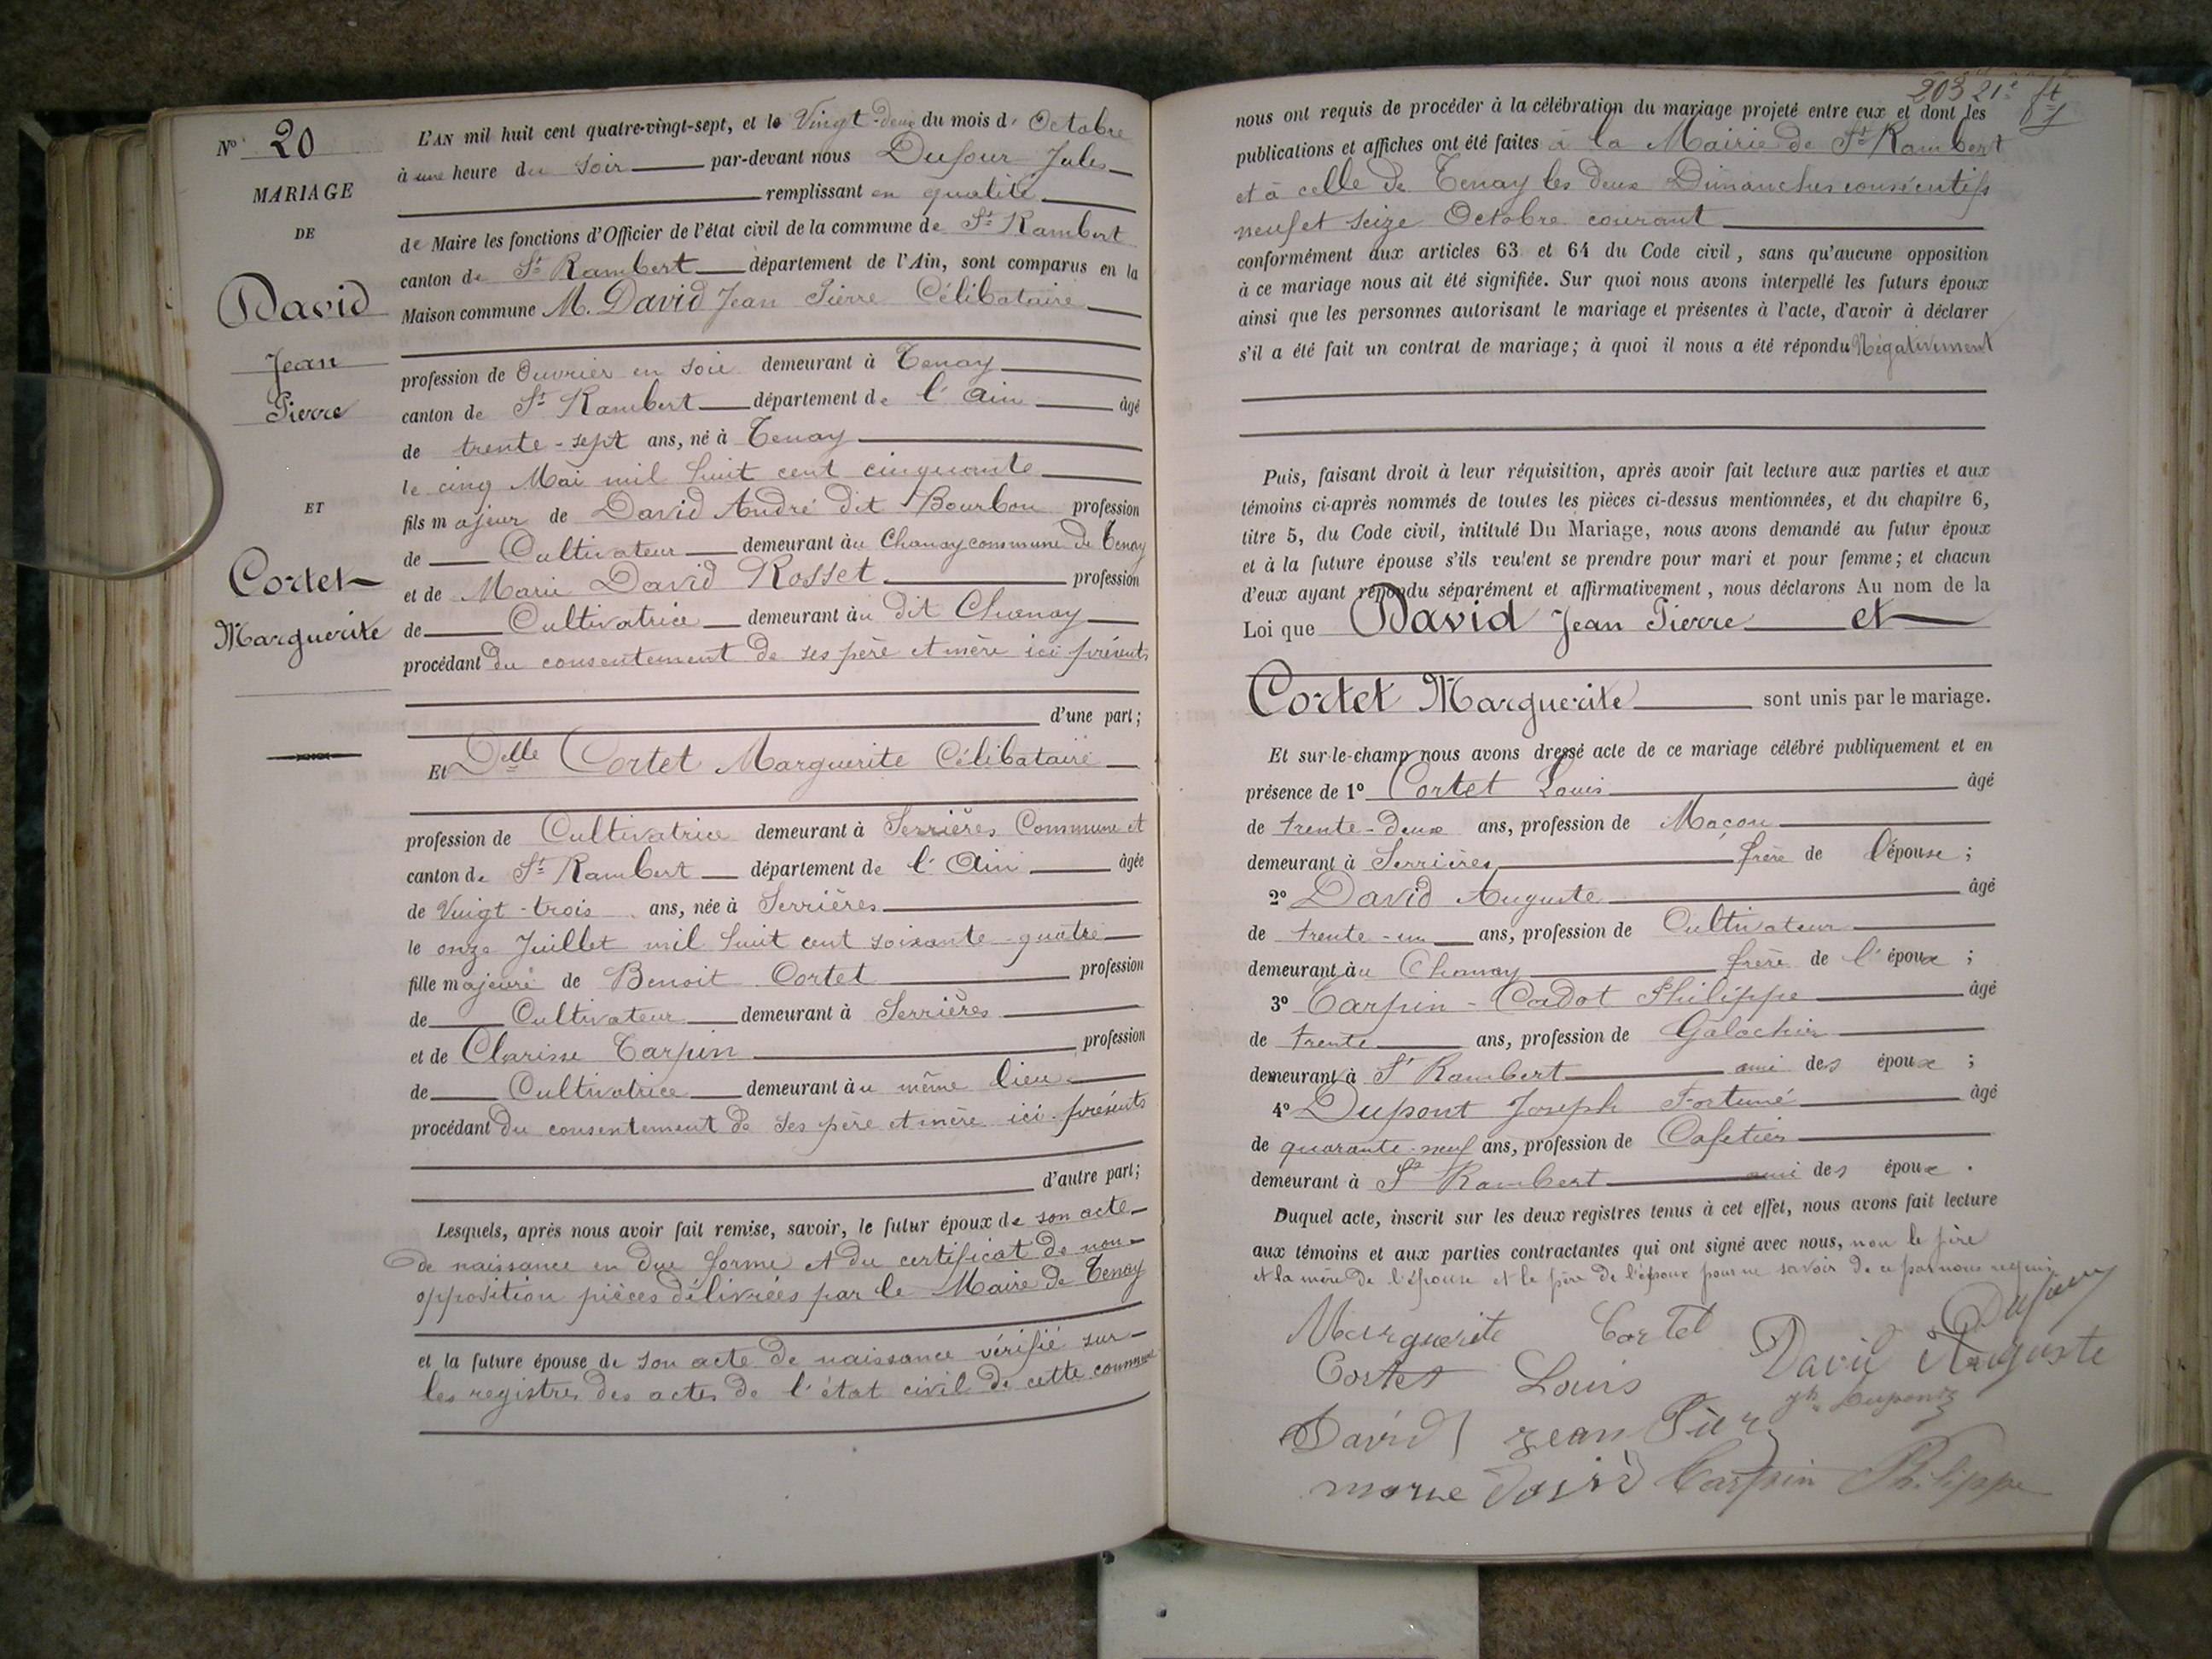 N° 20
MARIAGE
DE
David
Jean
Pierre
ET
Cortet
Marguerite
L'AN mil huit cent quatre-vingt-sept, et le Vingt-deux du mois d' Octobre
à une heure du soir par-devant nous Dufour Jules
remplissant en qualité
de Maire les fonctions d'Officier de l'état civil de la commune de St Rambert
canton de St Rambert département de l'Ain, sont comparus en la
Maison commune M. David Jean Pierre Célibataire
profession de Ouvrier en soie demeurant à Tenay
canton de St Rambert département de l'Ain âgé
de trente-sept ans, né à Tenay
le cinq Mai mil huit cent cinquante
fils majeur de David André dit Bourbon profession
de Cultivateur demeurant àu Chanay commune de Tenay
et de Marie David Rosset profession
de Cultivatrice demeurant àu dit Chanay
procédant du consentement de ses père et mère ici présents
d'une part;
Et Delle Cortet Marguerite Célibataire
profession de Cultivatrice demeurant à Serrières Commune et
canton de St Rambert département de l'Ain âgée
de Vingt-trois ans, née à Serrières
le onze Juillet mil huit cent soixante-quatre
fille majeure de Benoit Cortet profession
de Cultivateur demeurant à Serrières
et de Clarisse Carpin profession
de Cultivatrice demeurant àu même lieu
procédant du consentement de ses père et mère ici présents
d'autre part;
Lesquels, après nous avoir fait remise, savoir, le futur époux de son acte
de naissance en due forme et du certificat de non-
opposition pièces délivrées par le Maire de Tenay
et la future épouse de son acte de naissance vérifié sur
les registres des actes de l'état civil de cette commune
203 21e
nous ont requis de procéder à la célébration du mariage projeté entre eux et dont les
publications et affiches ont été faites à la Mairie de St Rambert
et à celle de Tenay les deux Dimanches consécutifs
neuf et seize Octobre courant
conformément aux articles 63 et 64 du Code civil, sans qu'aucune opposition
à ce mariage nous ait été signifiée. Sur quoi nous avons interpellé les futurs époux
ainsi que les personnes autorisant le mariage et présentes à l'acte, d'avoir à déclarer
s'il a été fait un contrat de mariage; à quoi il nous a été répondu Négativement
Puis, faisant droit à leur réquisition, après avoir fait lecture aux parties et aux
témoins ci-après nommés de toutes les pièces ci-dessus mentionnées, et du chapitre 6,
titre 5, du Code civil, intitulé Du Mariage, nous avons demandé au futur époux
et à la future épouse s'ils veulent se prendre pour mari et pour femme; et chacun
d'eux ayant répondu séparément et affirmativement, nous déclarons Au nom de la
Loi que David Jean Pierre et
Cortet Marguerite sont unis par le mariage.
Et sur-le-champ nous avons dressé acte de ce mariage célébré publiquement et en
présence de 1° Cortet Louis âgé
de trente-deux ans, profession de Maçon
demeurant à Serrières frère de l'épouse;
2° David Auguste âgé
de trente-un ans, profession de Cultivateur
demeurant àu Chanay frère de l'époux;
3° Carpin-Cadot Philippe âgé
de trente ans, profession de Galochier
demeurant à St Rambert ami des époux;
4° Dupont Joseph Fortuné âgé
de quarante-neuf ans, profession de Cafetier
demeurant à St Rambert ami des époux.
Duquel acte, inscrit sur les deux registres tenus à cet effet, nous avons fait lecture
aux témoins et aux parties contractantes qui ont signé avec nous, non le père
et la mère de l'épouse et le père de l'époux pour ne savoir de ce par nous requis
Dufour
Marguerite Cortet
Cortet Louis David Auguste
Dupont
David Jean Pier
marie David Carpin Philippe